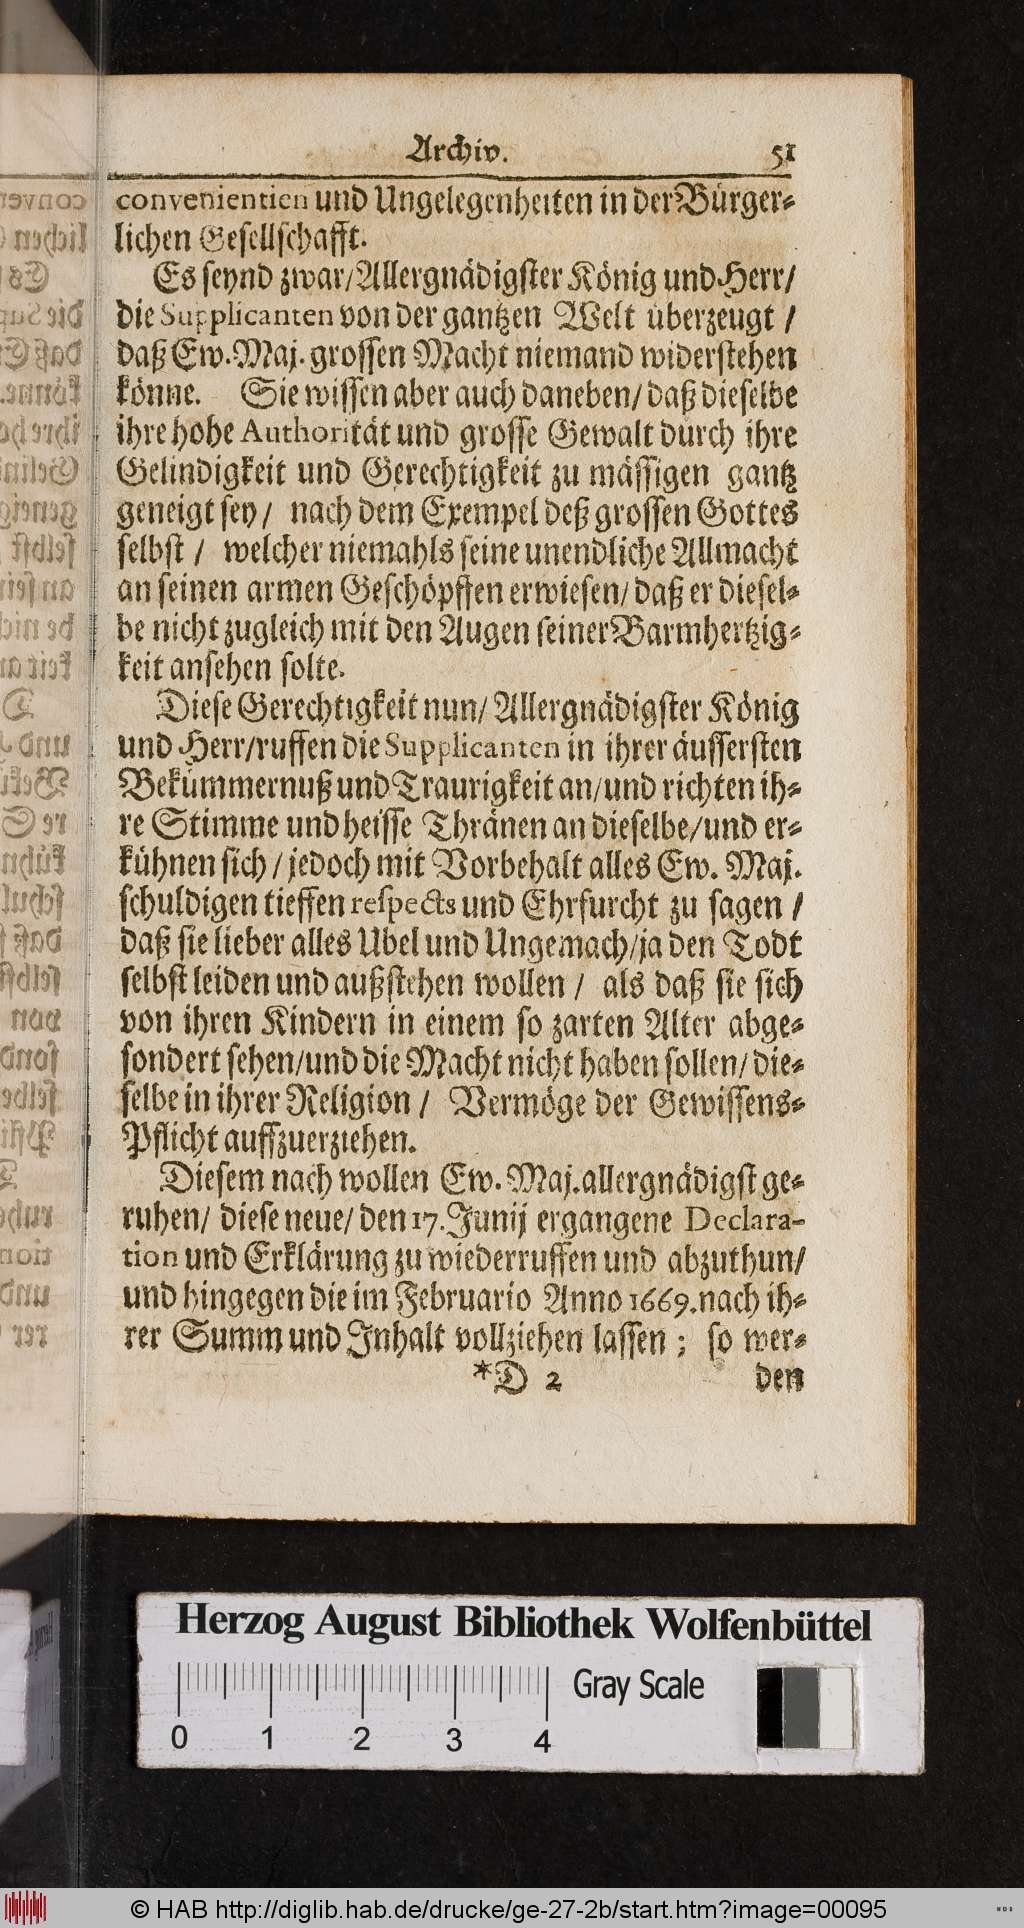 Archiv. 51
convenientien und Ungelegenheiten in der Bürger-
lichen Gesellschafft.
Es seynd zwar/Allergnädigster König und Herr/
die Supplicanten von der gantzen Welt überzeugt /
daß Ew. Maj. grossen Macht niemand widerstehen
könne. Sie wissen aber auch daneben/ daß dieselbe
ihre hohe Authorität und grosse Gewalt durch ihre
Gelindigkeit und Gerechtigkeit zu mässigen gantz
geneigt sey / nach dem Exempel deß grossen Gottes
selbst / welcher niemahls seine unendliche Allmacht
an seinen armen Geschöpffen erwiesen/ daß er diesel-
be nicht zugleich mit den Augen seiner Barmhertzig-
keit ansehen solte.
Diese Gerechtigkeit nun/ Allergnädigster König
und Herr/ruffen die Supplicanten in ihrer äussersten
Bekümmernuß und Traurigkeit an/und richten ih-
re Stimme und heisse Thränen an dieselbe/und er-
kühnen sich / jedoch mit Vorbehalt alles Ew. Maj.
schuldigen tieffen respects und Ehrfurcht zu sagen /
daß sie lieber alles Ubel und Ungemach/ja den Todt
selbst leiden und außstehen wollen / als daß sie sich
von ihren Kindern in einem so zarten Alter abge-
sondert sehen/und die Macht nicht haben sollen/ die-
selbe in ihrer Religion / Vermöge der Gewissens-
Pflicht auffzuerziehen.
Diesem nach wollen Ew. Maj. allergnädigst ge-
ruhen/ diese neue/ den 17. Junij ergangene Declara-
tion und Erklärung zu wiederruffen und abzuthun/
und hingegen die im Februario Anno 1669. nach ih-
rer Summ und Inhalt vollziehen lassen ; so wer-
*D 2 den
Herzog August Bibliothek Wolfenbüttel
0 1 2 3 4 Gray Scale
© HAB http://diglib.hab.de/drucke/ge-27-2b/start.htm?image=00095